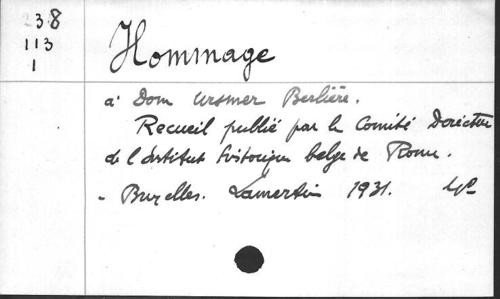 38
113
1
Hommage
à Dom Ursmer Berlière.
Recueil publié par le Comité Directeur
de l'Institut historique belge de Rome.
- Bruxelles. Lamertin 1931.